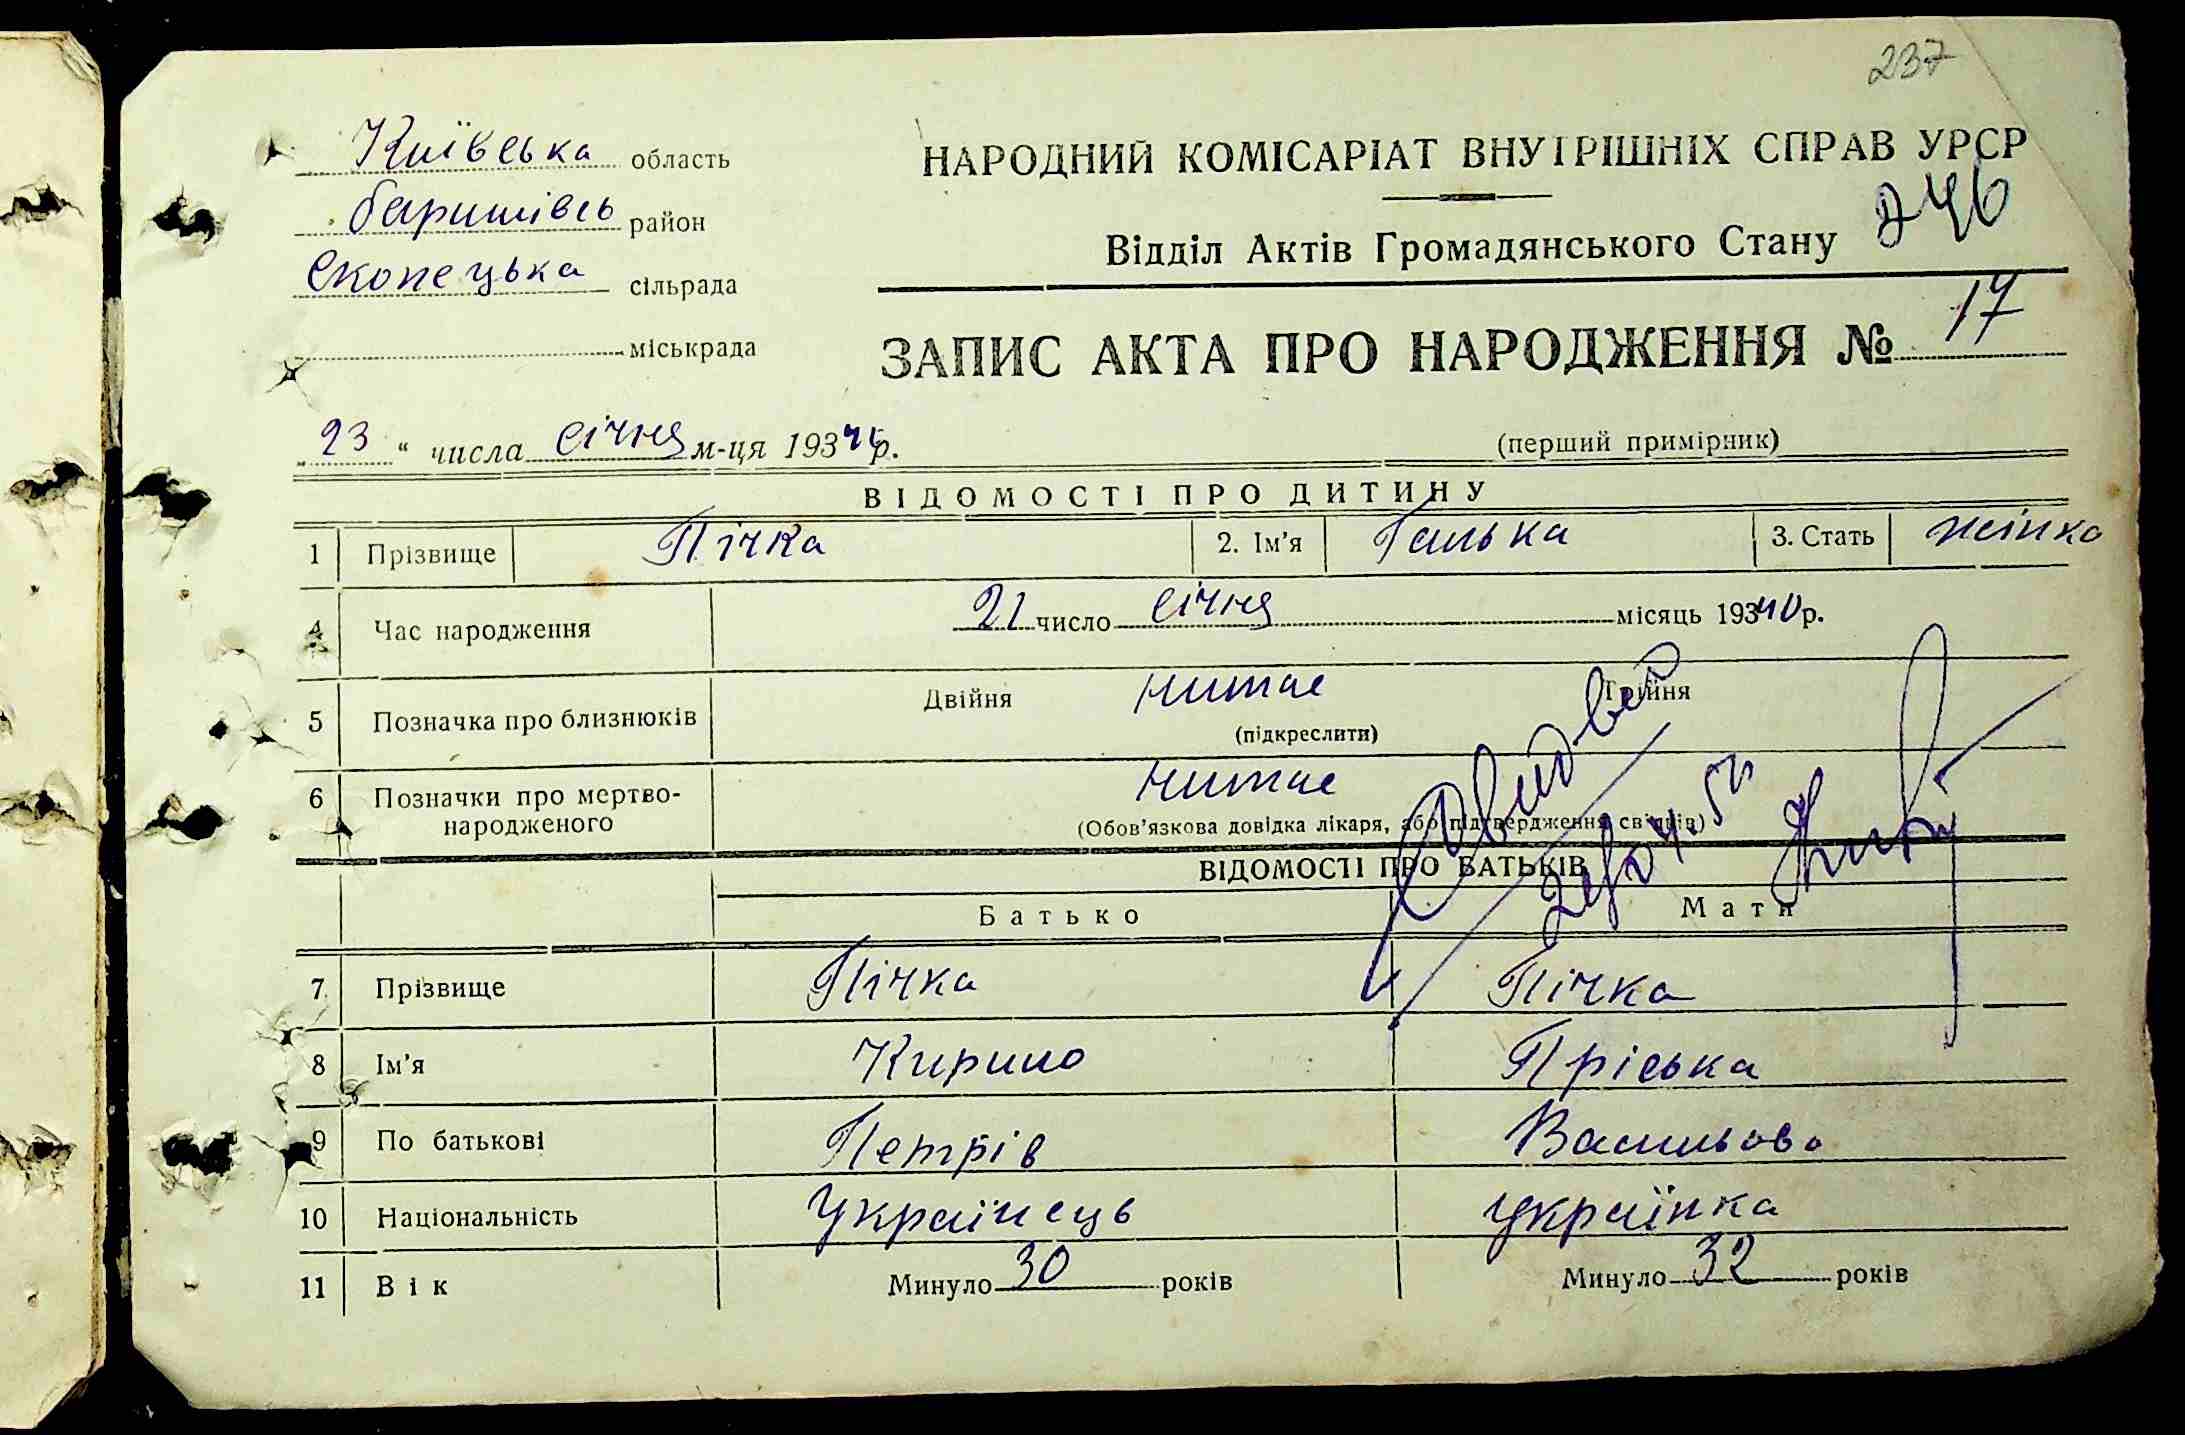 237
Київська область
НАРОДНИЙ КОМІСАРІАТ ВНУТРІШНІХ СПРАВ УРСР
баришівсь район
Відділ Актів Громадянського Стану
Скопецька сільрада
міськрада
ЗАПИС АКТА ПРО НАРОДЖЕННЯ № 17
„23“ числа січня м-ця 193 р.
(перший примірник)
ВІДОМОСТІ ПРО ДИТИНУ
1 Прізвище Пічка 2. Ім'я Галька 3. Стать жінка
4 Час народження 21 число січня місяць 19340 р.
5 Позначка про близнюків Двійня немає Трійня
(підкреслити)
6 Позначки про мертво-
народженого немає
(Обов'язкова довідка лікаря, або підтвердження свідків)
ВІДОМОСТІ ПРО БАТЬКІВ
Батько Мати
7 Прізвище Пічка Пічка
8 Ім'я Кирило Пріська
9 По батькові Петрів Васильова
10 Національність Українець Українка
11 Вік Минуло 30 років Минуло 32 років